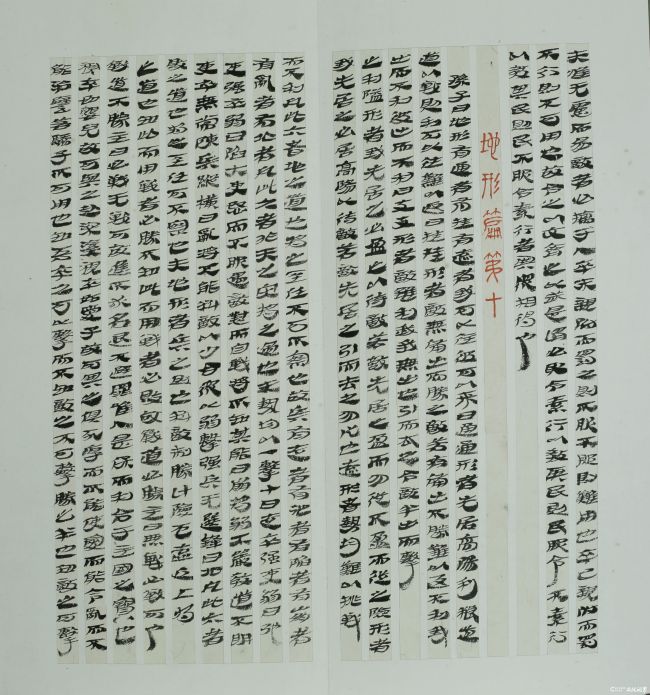 夫唯无慮而易敵者必擒于人卒未親附而罰之則不服不服則難用也卒已親附而罰
不行則不可用也故合之以文齊之以武是謂必取令素行以教其民則民服令不素行
以教其民則民不服令素行者與衆相得也
地形篇第十
孫子曰地形有通者有挂者有遠者我可以往彼可以來曰通通形者先居高陽利糧道
道以戰則利可以往難以返曰挂挂形者敵無備出而勝之敵若有備出不勝難以返不利我
出而不利彼出而不利曰支支形者敵雖利我我無出也引而去之令敵半出而擊
之利隘形者我先居之必盈之以待敵若敵先居之盈而勿從不盈而從之險形者
我先居之必居高陽以待敵若敵先居之引而去之勿從也遠形者勢均難以挑戰
而不利凡此六者地之道也將之至任不可不察也故兵有走者有弛者有陷者有崩者
有亂者有北者凡此六者非天之災將之過也夫勢均以一擊十曰走卒强吏弱曰弛
吏强卒弱曰陷大吏怒而不服遇敵懟而自戰將不知其能曰崩將弱不嚴教道不明
吏卒無常陳兵縱横曰亂將不能料敵以少合衆以弱擊强兵无選鋒曰北凡此六者
敗之道也將之至任不可不察也夫地形者兵之助也料敵制勝計險厄遠近上將
之道也知此而用戰者必勝不知此而用戰者必敗故戰道必勝主曰無戰必戰可也
戰道不勝主曰必戰无戰可故進不求名退不避罪唯人是保而利合于主國之寶也
視卒如嬰兒故可與之赴深溪視卒如愛子故可與之俱死厚而不能使愛而能令亂而不
能治譬若驕子不可用也知吾卒之可以擊而不知敵之不可擊勝之半也知敵之可擊